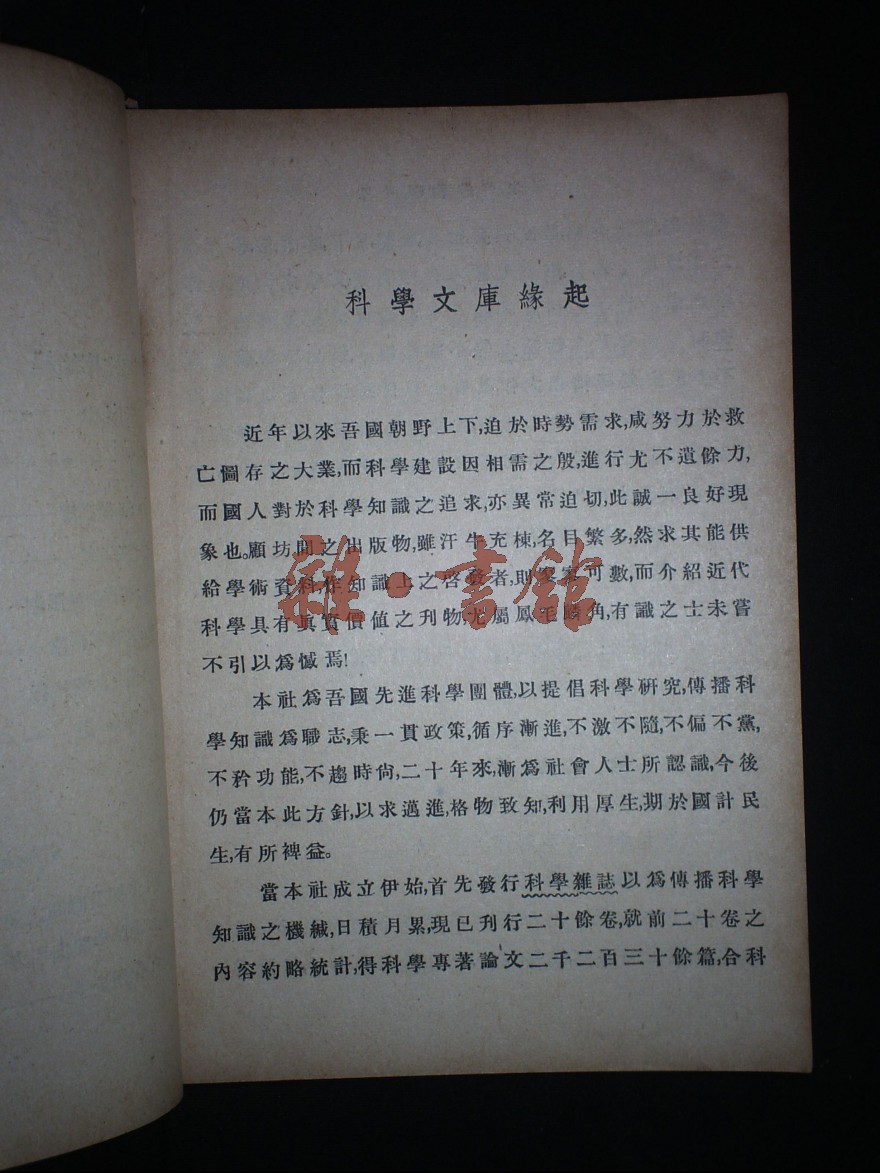 科學文庫緣起
近年以來吾國朝野上下,迫於時勢需求,咸努力於救
亡圖存之大業,而科學建設因相需之殷,進行尤不遺餘力,
而國人對於科學知識之追求,亦異常迫切,此誠一良好現
象也。顧坊間之出版物,雖汗牛充棟,名目繁多,然求其能供
給學術資料,作知識上之啓發者,則寥寥可數,而介紹近代
科學具有眞實價值之刊物,尤屬鳳毛麟角,有識之士未嘗
不引以爲憾焉!
本社爲吾國先進科學團體,以提倡科學硏究,傳播科
學知識爲職志,秉一貫政策,循序漸進,不激不隨,不偏不黨,
不矜功能,不趨時尙,二十年來,漸爲社會人士所認識,今後
仍當本此方針,以求邁進,格物致知,利用厚生,期於國計民
生,有所裨益。
當本社成立伊始,首先發行科學雜誌以爲傳播科學
知識之機緘,日積月累,現已刊行二十餘卷,就前二十卷之
內容約略統計,得科學專著論文二千二百三十餘篇,合科
雜·書館